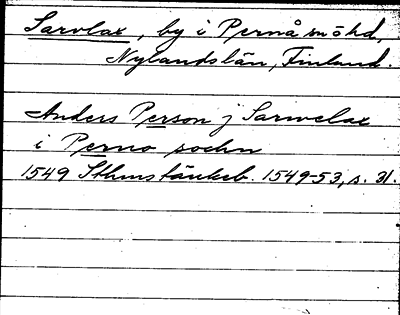 Sarvlax, by i Pernå snöhd,
Nylandslän, Finland.
Anders Person j Sarwelax
i Perno sochn
1549 Sthms tänkeb. 1549-53, s. 31.